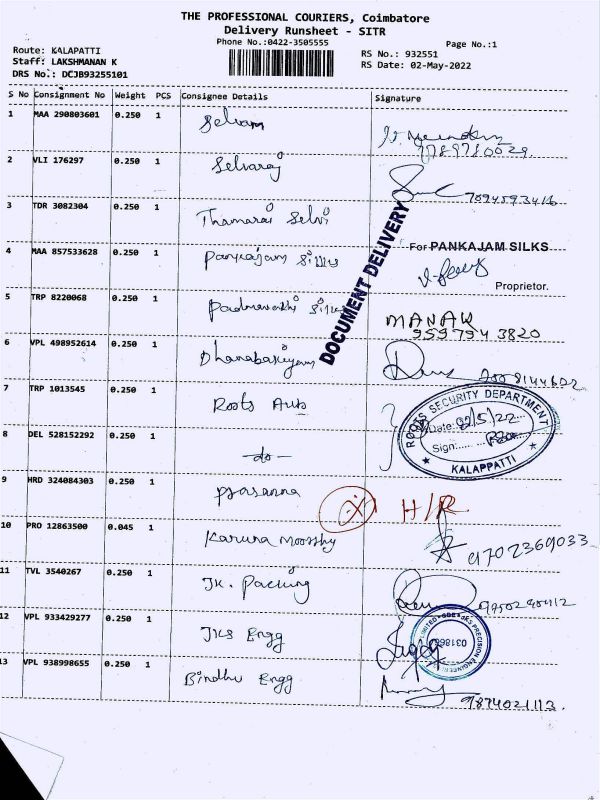 THE PROFESSIONAL COURIERS, Coimbatore
Delivery Runsheet - SITR
Phone No.:0422-3505555
Page No.:1
Route: KALAPATTI
Staff: LAKSHMANAN K
DRS No.: DCJB93255101
RS No.: 932551
RS Date: 02-May-2022
S No Consignment No Weight PCS Consignee Details Signature
1 MAA 290803601 0.250 1 Selvam
2 VLI 176297 0.250 1 Selvaraj
7094593416
3 TDR 3082304 0.250 1 Thamarai Selvi
DOCUMENT DELIVERY
For PANKAJAM SILKS
4 MAA 857533628 0.250 1 Pankajam Silks
Proprietor.
5 TRP 8220068 0.250 1 Padmavathi Silks
MANAK
9597943820
6 VPL 498952614 0.250 1 Dhanabakiyam
7 TRP 1013545 0.250 1 Roots Auto
ROOTS SECURITY DEPARTMENT
Date: 02/5/22
Sign:
KALAPPATTI
8 DEL 528152292 0.250 1 -do-
9 HRD 324084303 0.250 1 Prasanna
X H/R
10 PRO 12863500 0.045 1 Karuna Moorthy
9702369033
11 TVL 3540267 0.250 1 JK. Packing
12 VPL 933429277 0.250 1 JKS Engg
13 VPL 938998655 0.250 1 Bindhu Engg
9874021113.